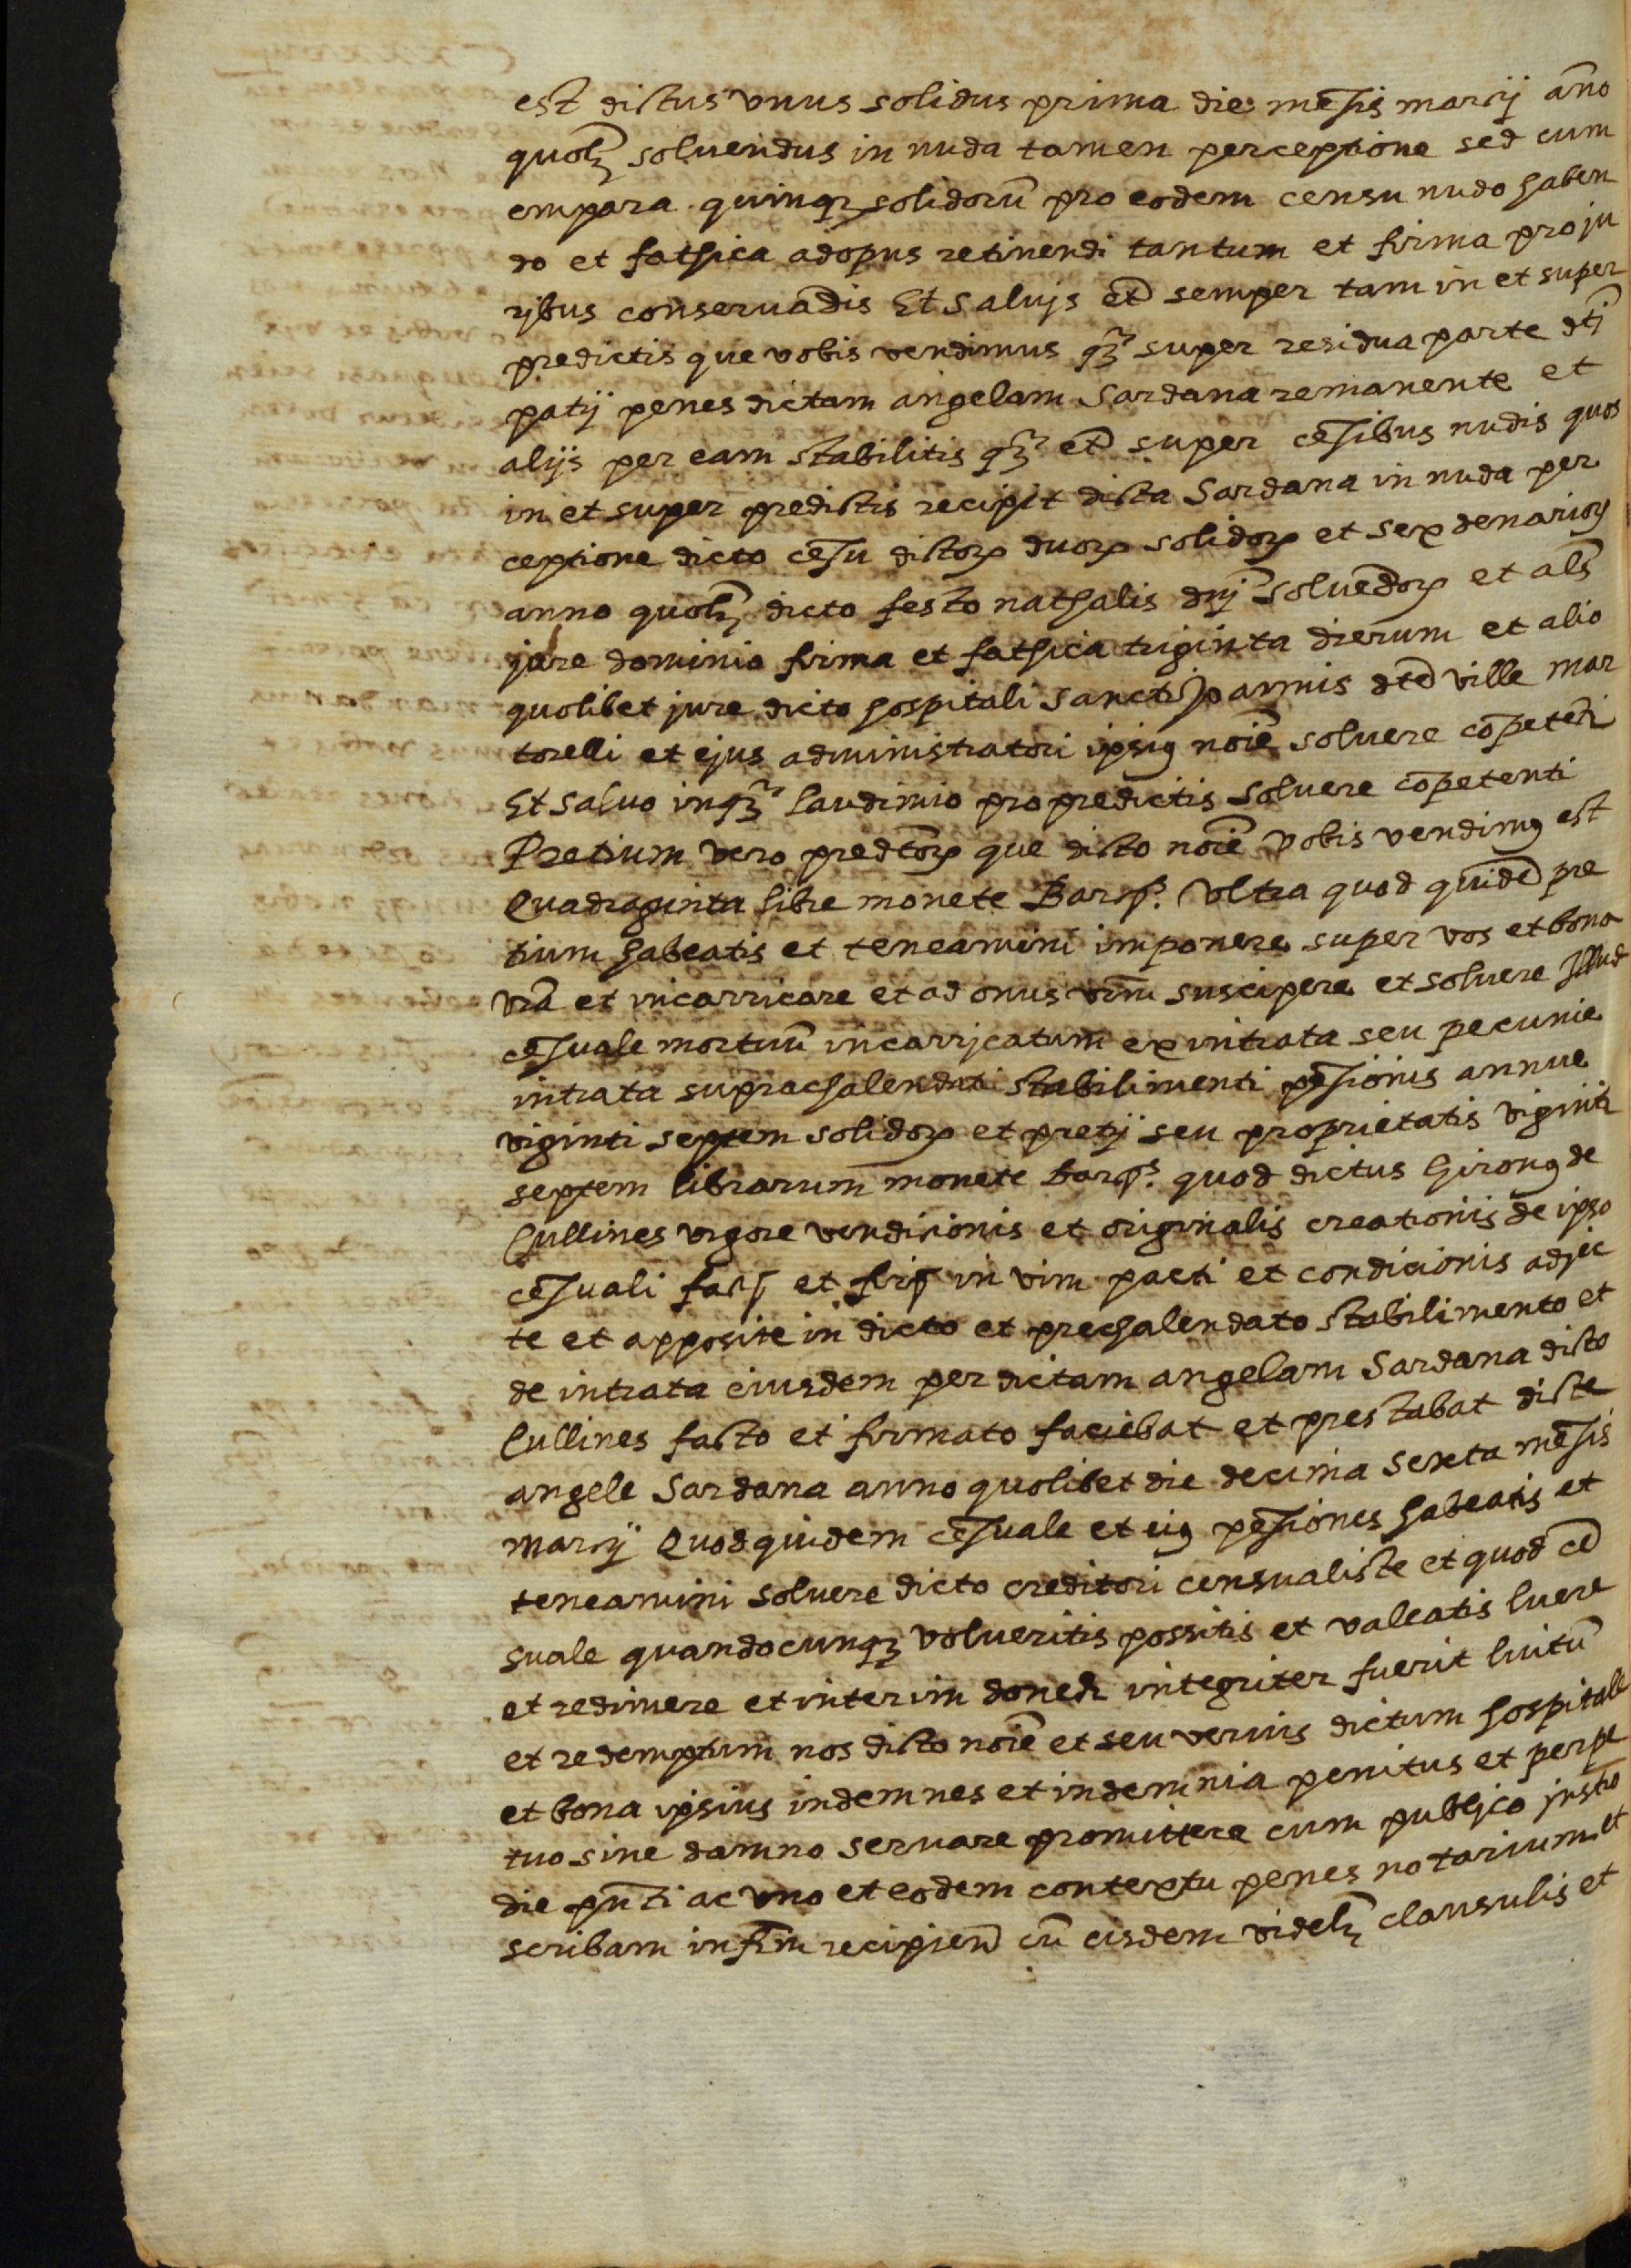 est dictus vnus solidus prima die mēsis marcij año
quolꝫ soluendus in nuda tamen perceptione sed cum
empara quinqꝫ solidorū pro eodem censu nudo haben
do et fathica ad opus retinendi tantum et firma pro ju
ribus conseruādis Et saluis etā semper tam in et super
predictis que vobis vendimus qꝫ super residua parte dti
patij penes dictam angelam Sardana remanente et
alijs per eam stabilitis qꝫ etā super cēsibus nudis quos
in et super predictis recipit dicta Sardana in nuda per
ceptione dicto cēsu dictoꝝ duoꝝ solidoꝝ et sex denarioꝝ
anno quolꝫ dicto festo nathalis dnj soluēdoꝝ et als
jure dominio firma et fathica triginta dierum et alio
quolibet jure dicto hospitali sancti Joannis dte ville mar
torelli et ejus administratori ipsiꝰ noīe soluere cōpetēti
Et saluo inqꝫ laudimio pro predictis soluere cōpetenti
Pretium vero predctoꝝ que dicto noīe vobis vendimꝰ est
Quadraginta libre monete Barꝝ. Vltra quod quidē pre
tium habeatis et teneamini imponere super vos et bona
vrā et incarricare et ad onus vrm̄ suscipere et soluere Illud
cēsuale mortuū incarricatum ex intrata seu pecunie
intrata suprachalendati stabilimenti pēsionis annue
viginti septem solidoꝝ et pretij seu proprietatis viginti
septem librarum monete barꝝ. quod dictus Gironꝰ de
Cullines vigore vendicionis et originalis creationis de ipso
cēsuali fact et firt in vim pacti et condicionis adjec
te et apposite in dicto et prechalendato stabilimento et
de intrata eiusdem per dictam angelam Sardana dicto
Cullines facto et firmato faciebat et prestabat dicte
angele Sardana anno quolibet die decima sexta mēsis
marcij Quod quidem cēsuale et eiꝰ pēsiones habeatis et
teneamini soluere dicto creditori censualiste et quod cē
suale quandocunqꝫ volueritis possitis et valeatis luere
et redimere et interim donech integriter fuerit luitū
et redemptum nos dicto noīe et seu verius dictum hospitale
et bona ipsius indemnes et indemnia penitus et perpe
tuo sine damno seruare promittere cum publico justo
die pn̄ti ac vno et eodem contextu penes notarium et
scribam infrm̄ recipien̄ cū eisdem videlꝫ clausulis et